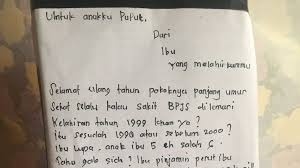 Untuk anakku Puput.
Dari
Ibu
yang melahirkanmu
Selamat ulang tahun pokoknya panjang umur
Sehat selalu kalau sakit BPJS dilemari
Kelahiran tahun 1999 kan ya?
itu sesudah 1998 atau sebelum 2000?
Ibu lupa, anak ibu 5 eh salah 6.
gak sich! Ibu pinjamin perut ibu